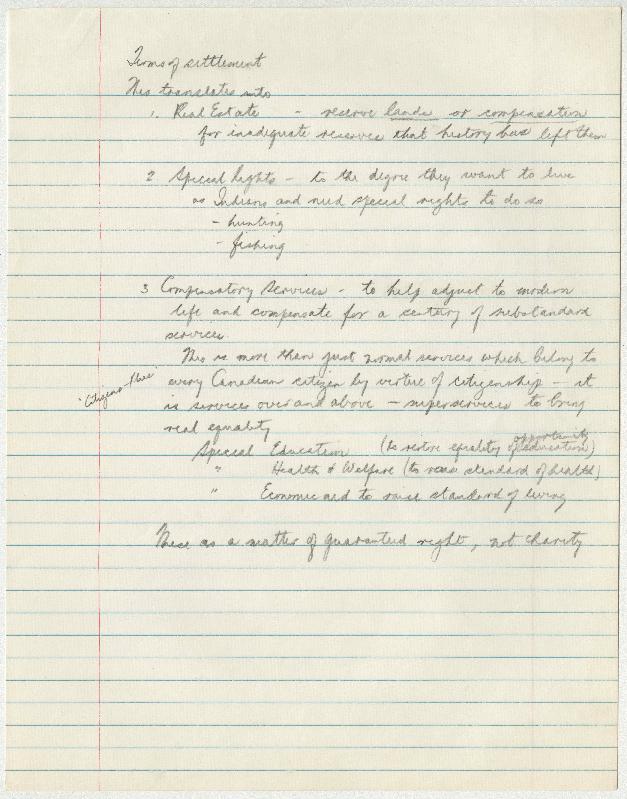 Terms of settlement
This translates into
1. Real Estate - reserve lands or compensation
for inadequate reserves that history has left them
2 Special rights - to the degree they want to live
as Indians and need special rights to do so
- hunting
- fishing
3 Compensatory Services - to help adjust to modern
life and compensate for a century of substandard
services.
This is more than just normal services which belong to
every Canadian citizen by virtue of citizenship - it
"Citizens Plus"
is services over and above - superservices to bring
real equality
opportunity
Special Education (to restore equality of education)
" Health & Welfare (to raise standard of health)
" Economic aid to raise standard of living
These as a matter of guaranteed right, not charity